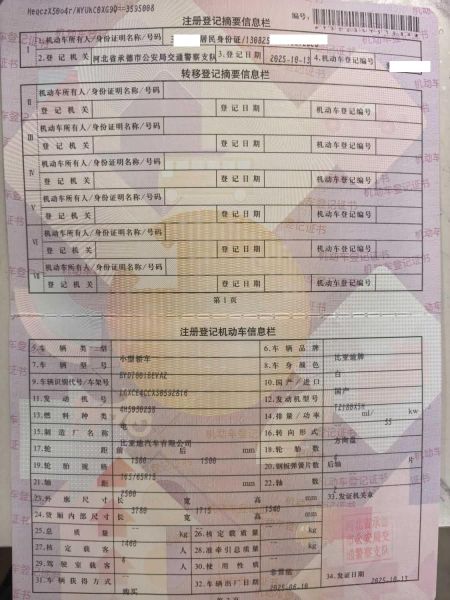 注册登记摘要信息栏
编号:
I
1.机动车所有人/身份证明名称/号码
居民身份证/
2.登记机关 河北省承德市公安局交通警察支队 3.登记日期 2025-10-13 4.机动车登记编号
转移登记摘要信息栏
II 机动车所有人/身份证明名称/号码
登记机关 登记日期 机动车登记编号
III 机动车所有人/身份证明名称/号码
登记机关 登记日期 机动车登记编号
IV 机动车所有人/身份证明名称/号码
登记机关 登记日期 机动车登记编号
V 机动车所有人/身份证明名称/号码
登记机关 登记日期 机动车登记编号
VI 机动车所有人/身份证明名称/号码
登记机关 登记日期 机动车登记编号
VII 机动车所有人/身份证明名称/号码
登记机关 登记日期 机动车登记编号
第1页
注册登记机动车信息栏
5.车辆类型 小型轿车 6.车辆品牌 比亚迪牌
7.车辆型号 8.车身颜色 白
9.车辆识别代号/车架号 10.国产/进口 国产
11.发动机号 12.发动机型号 TZ180XSH
13.燃料种类 电 14.排量/功率 ml/ 55 kw
15.制造厂名称 比亚迪汽车有限公司 16.转向形式 方向盘
17.轮距 前 1500 后 1500 mm 18.轮胎数 4
19.轮胎规格 165/65R15 20.钢板弹簧片数 后轴 片
21.轴距 2500 mm 22.轴数 2
23.外廓尺寸 长 3780 宽 1715 高 1540 mm 33.发证机关章
24.货厢内部尺寸 长 宽 高 mm
25.总质量 1460 kg 26.核定载质量 kg
27.核定载客 4 人 28.准牵引总质量 kg
29.驾驶室载客 人 30.使用性质 非营运
31.车辆获得方式 购买 32.车辆出厂日期 2025-06-10 34.发证日期 2025-10-13
河北省承德市公安局交通警察支队
第2页